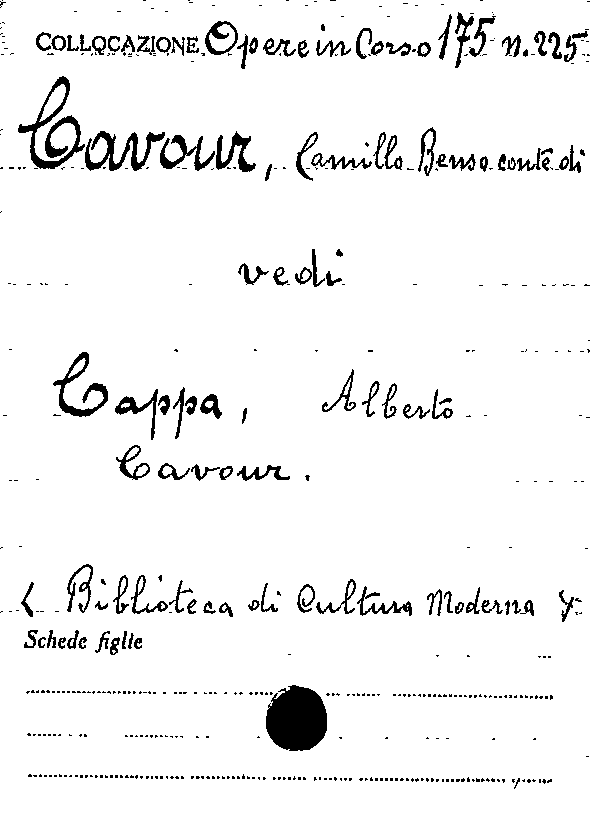 COLLOCAZIONE Opere in Corso 175 n. 225
Cavour, Camillo Benso conte di
vedi
Cappa, Alberto
Cavour.
< Biblioteca di Cultura Moderna >
Schede figlie